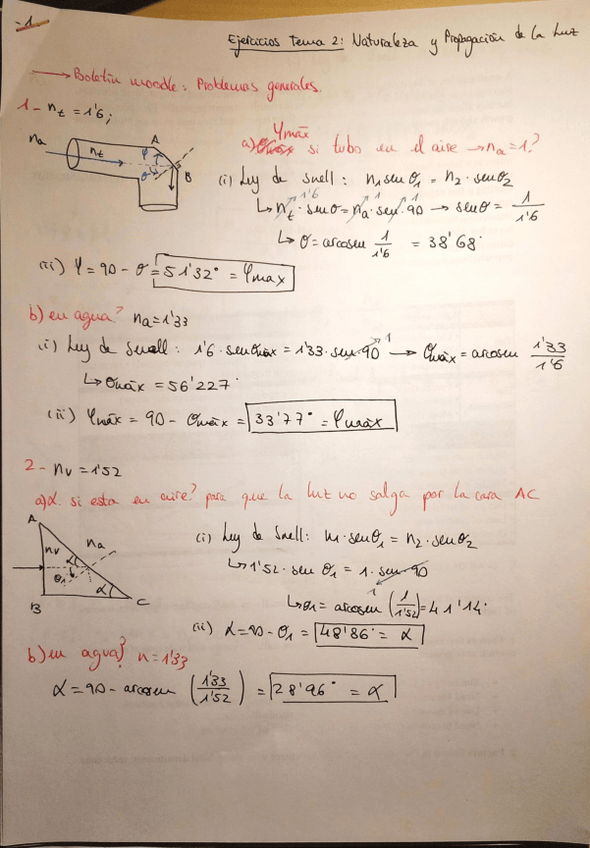 -1
Ejercicios Tema 2: Naturaleza y Propagación de la Luz
→ Boletín moodle: Problemas generales.
1- nt = 1'6;
na
nt
A
φ
θ
B
a) φmáx si tubo en el aire → na = 1?
(i) Ley de Snell: n1 senθ1 = n2 · senθ2
↳ nt · senθ = na · sen 90 → senθ = 1/1'6
1'6 1 1
↳ θ = arcosen 1/1'6 = 38'68°
(ii) φ = 90 - θ = 51'32° = φmax
b) en agua? na = 1'33
(i) Ley de Snell: 1'6 · senθmáx = 1'33 · sen 90 1 → θmáx = arcosen 1'33/1'6
↳ θmáx = 56'227°
(ii) φmáx = 90 - θmáx = 33'77° = φmáx
2- nv = 1'52
a) α si esta en aire? para que la luz no salga por la cara AC
A
nv
na
α
θ1
α
B
C
(i) Ley de Snell: n1 · senθ1 = n2 · senθ2
↳ 1'52 · sen θ1 = 1 · sen 90
1
↳ θ1 = arcosen (1/1'52) = 41'14°
(ii) α = 90 - θ1 = 48'86° = α
b) en agua? n = 1'33
α = 90 - arcosen (1'33/1'52) = 28'96° = α